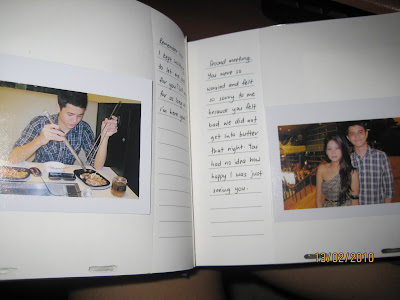 Remember
I kept
to let me
for
for as long
i'm here
Second meeting.
You were so
worried and felt
so sorry to me
because you felt
bad we did not
get into butter
that night. You
had no idea how
happy I was just
seeing you.
13/02/2010